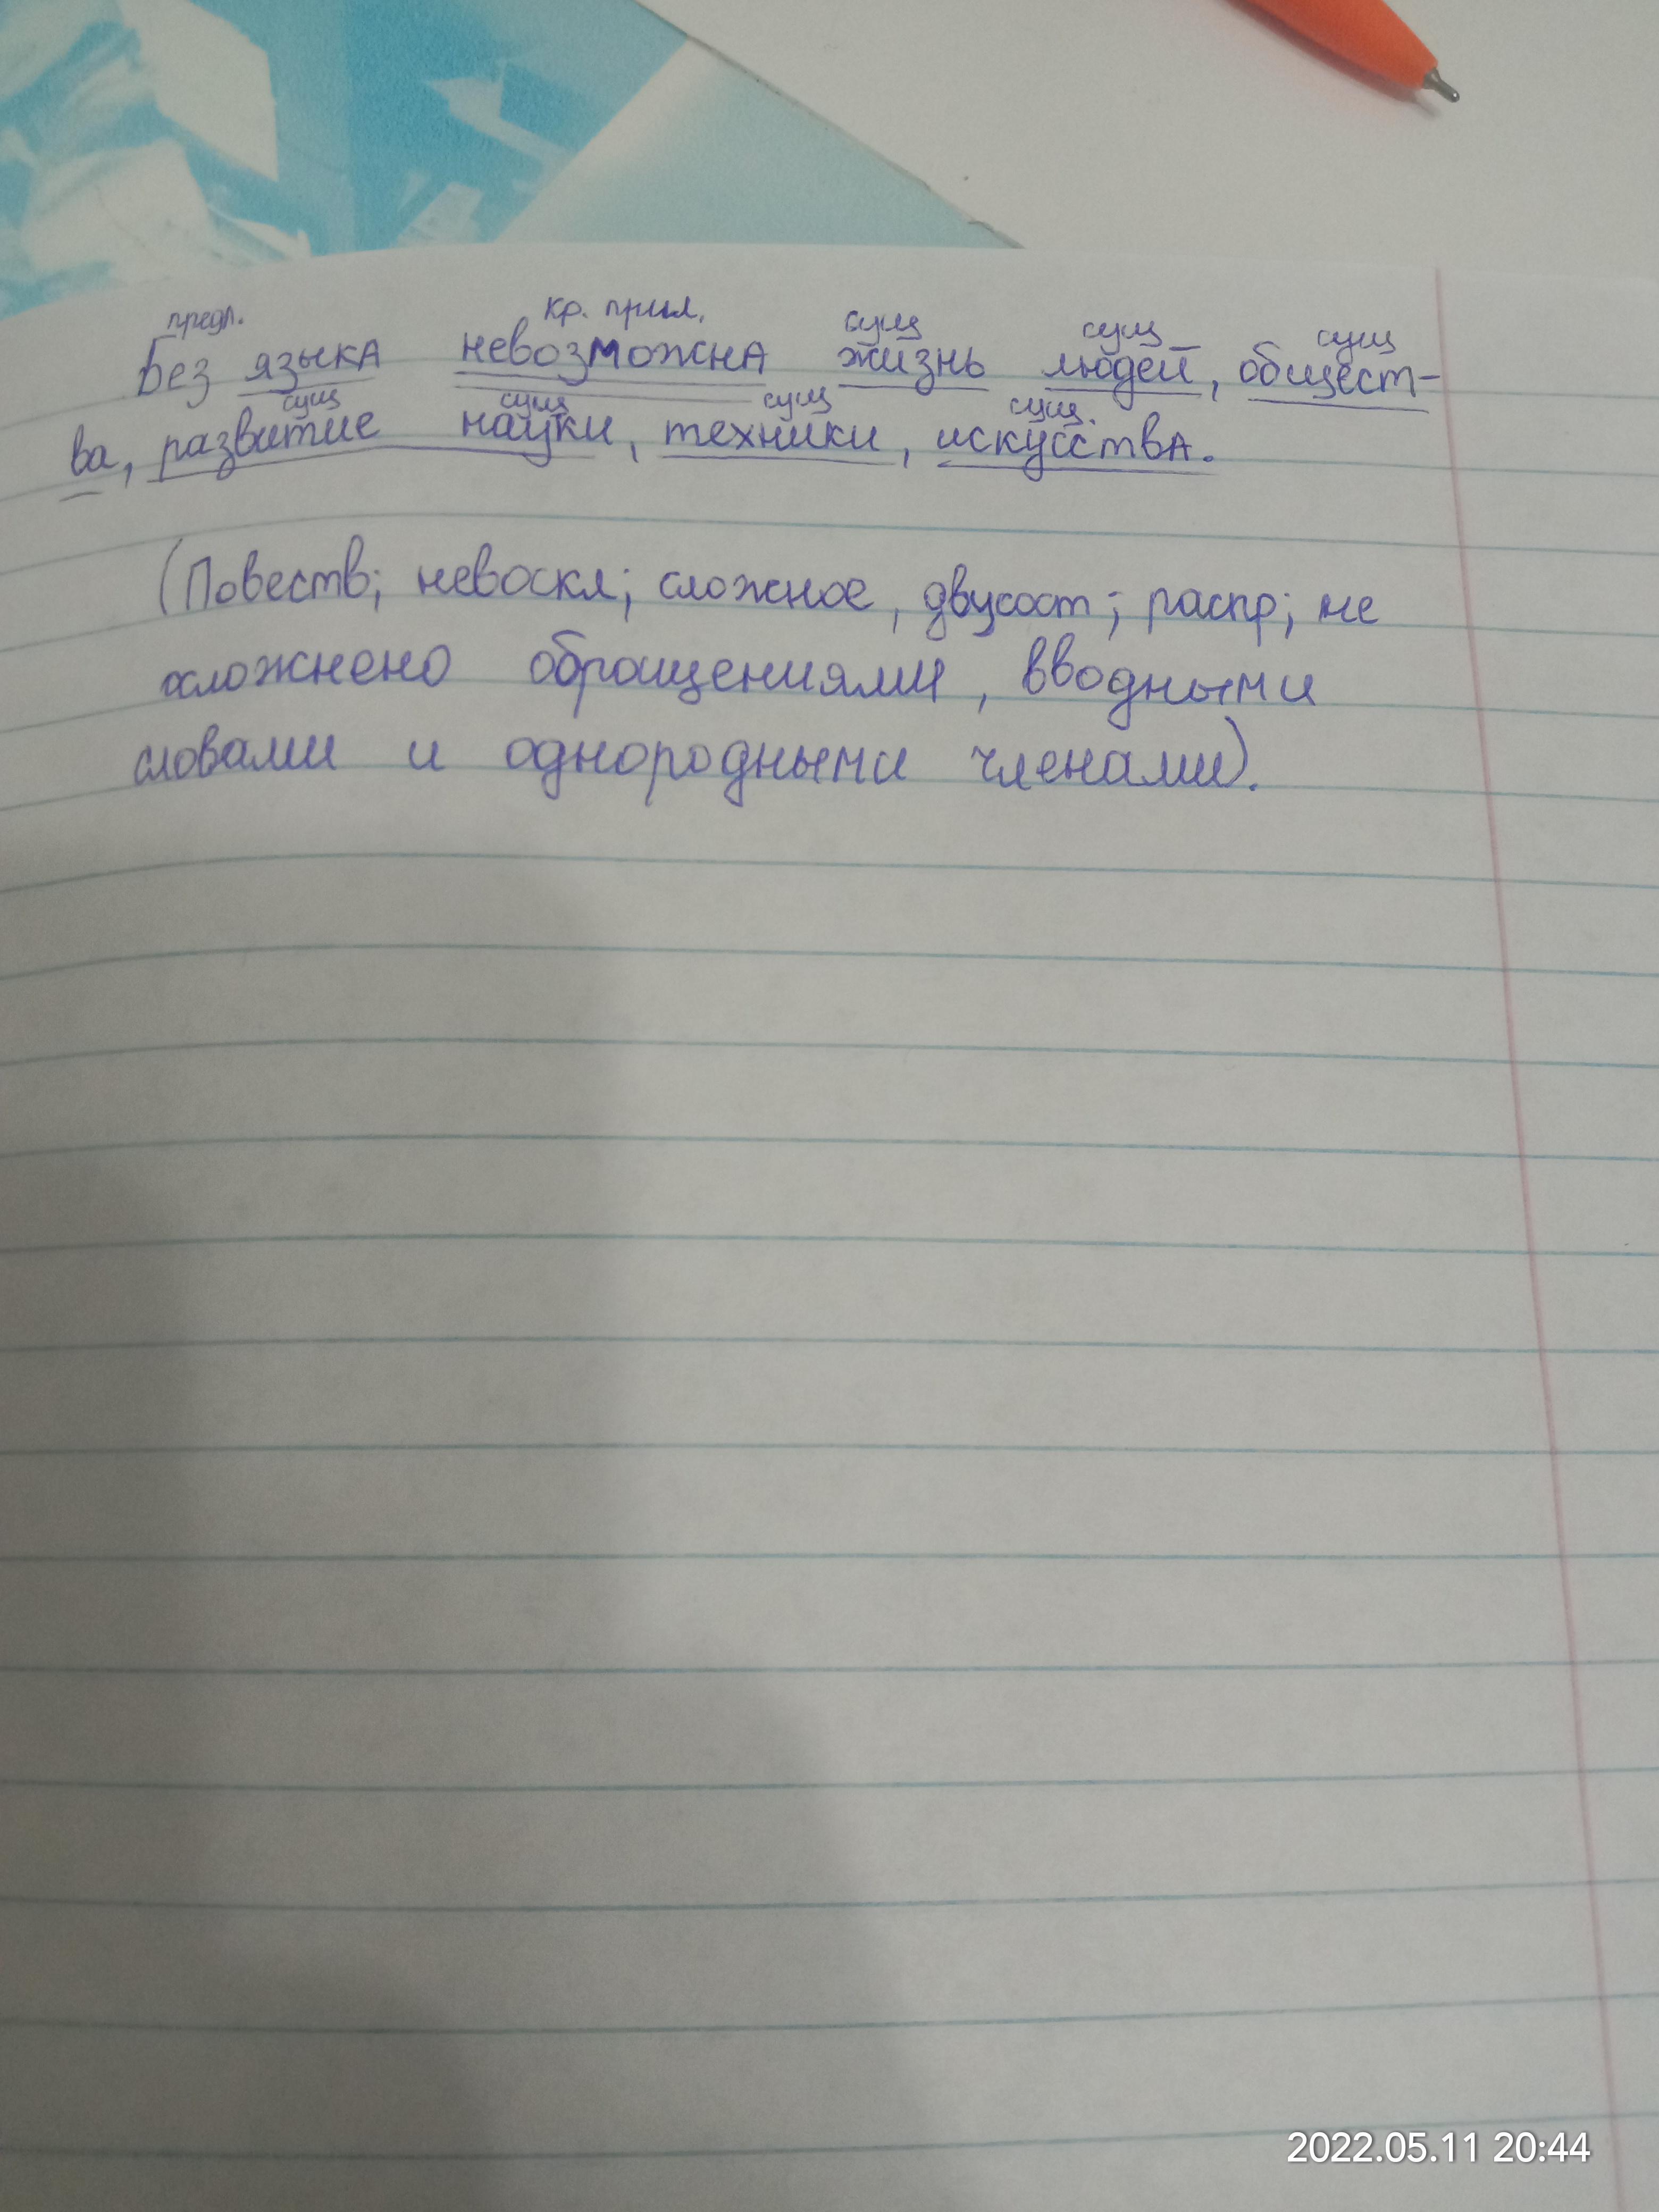 предл. кр. прил. сущ сущ сущ
Без языка невозможна жизнь людей, общест-
сущ сущ сущ сущ.
ва, развитие науки, техники, искусства.
(Повеств; невоскл; сложное, двусост; распр; не
осложнено обращениями, вводными
словами и однородными членами).
2022.05.11 20:44